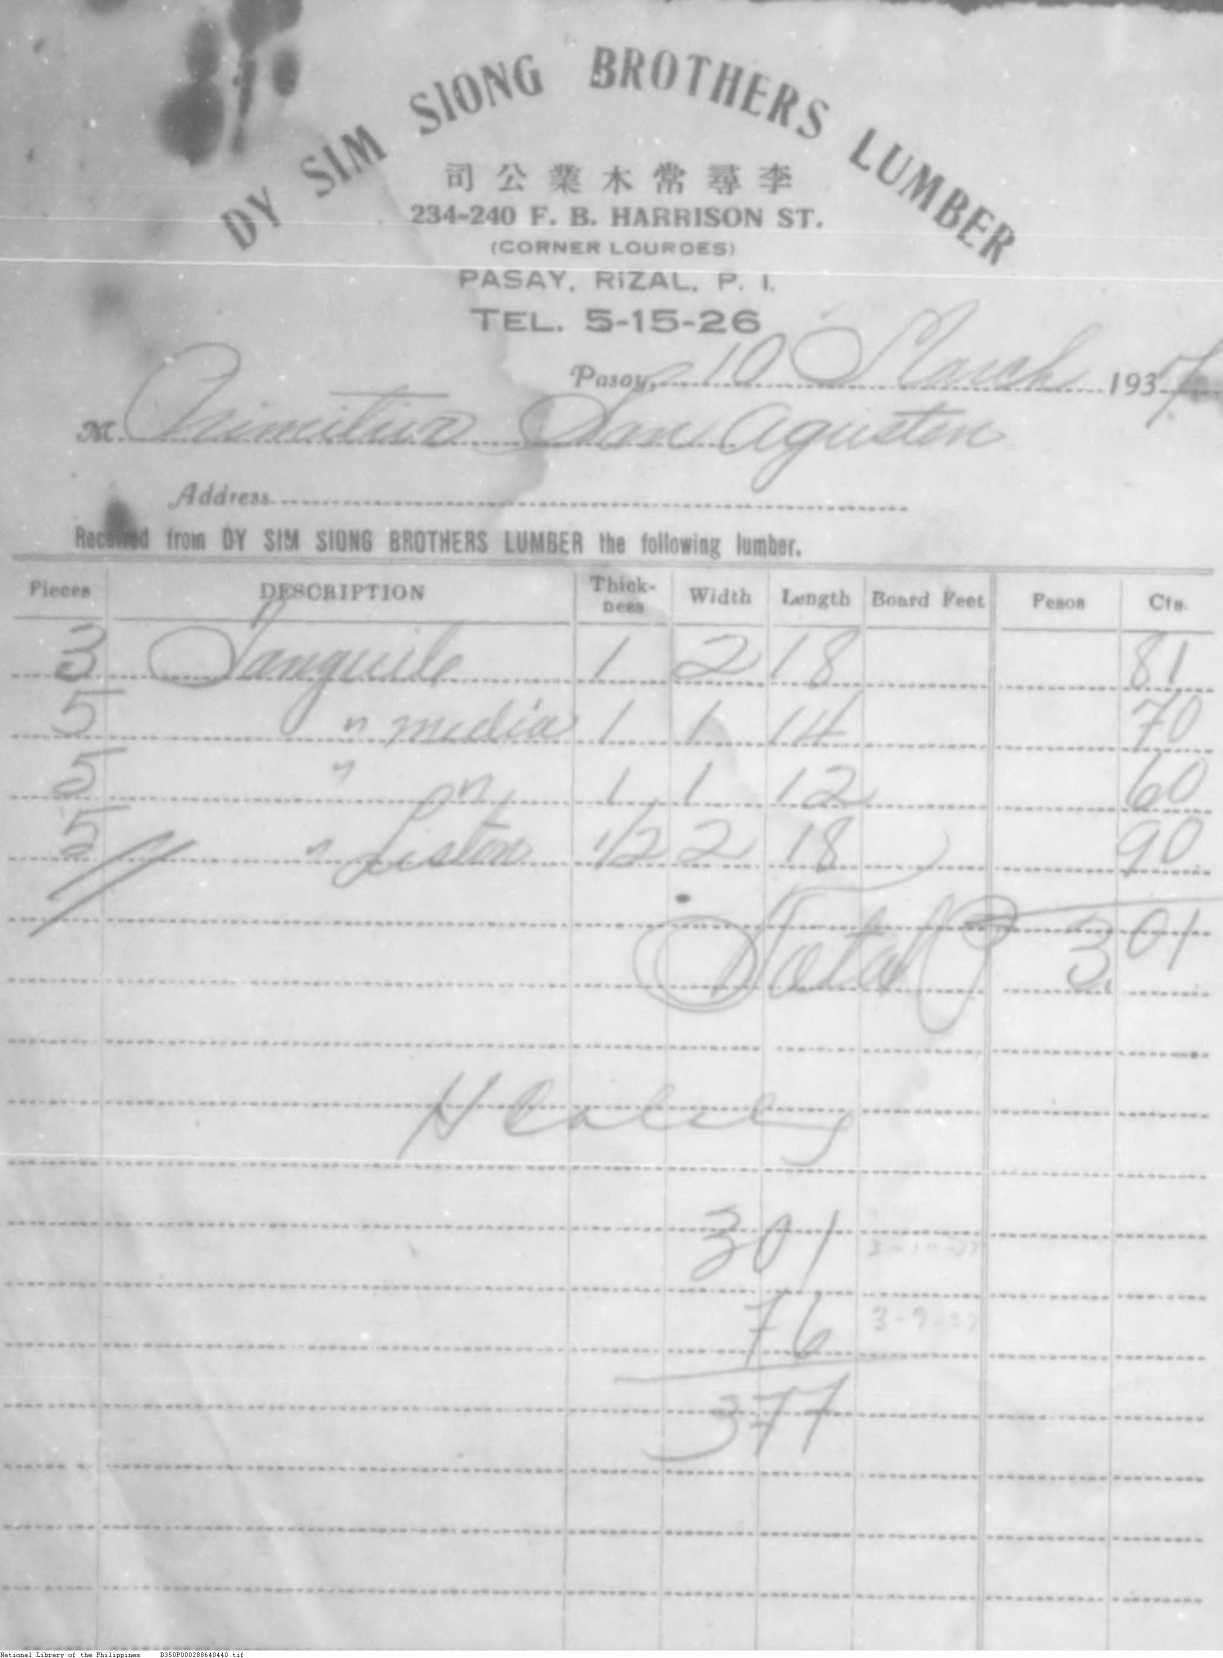 DY SIM SIONG BROTHERS LUMBER
司公業木常尋李
234-240 F. B. HARRISON ST.
(CORNER LOURDES)
PASAY, RIZAL, P. I.
TEL. 5-15-26
Pasay, 10 March 1937
M Primitiva San Agusten
Address
Received from DY SIM SIONG BROTHERS LUMBER the following lumber.
Pieces DESCRIPTION Thick-ness Width Length Board Feet Pesos Cts.
3 Tanguile 1 2 18 81
5 " media 1 1 14 70
5 " " 1 1 12 60
5 " Liston 1/2 2 18 90
Total P 3.01
301
76 3-9-37
377
National Library of the Philippines D350P000288640440.tif